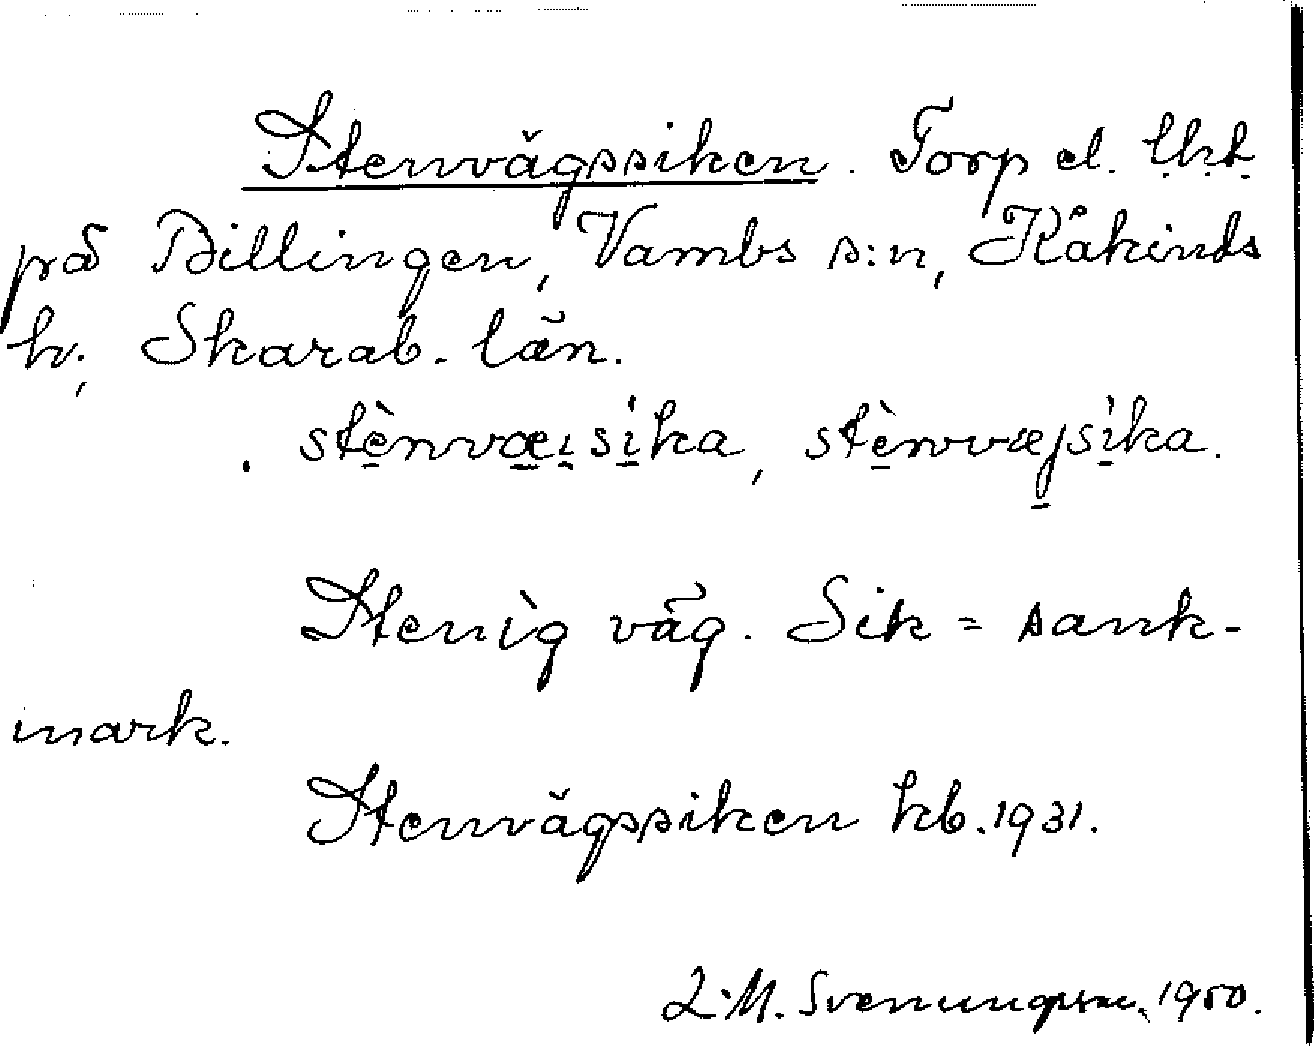 Stenvägssiken. Torp el. lht
på Billingen, Vambs s:n, Kåkinds
h., Skarab. län.
stènvæısika, stènvæjsika.
Stenig väg. Sik = sank-
mark.
Stenvägssiken kb. 1931.
L.M. Svenungsson, 1950.